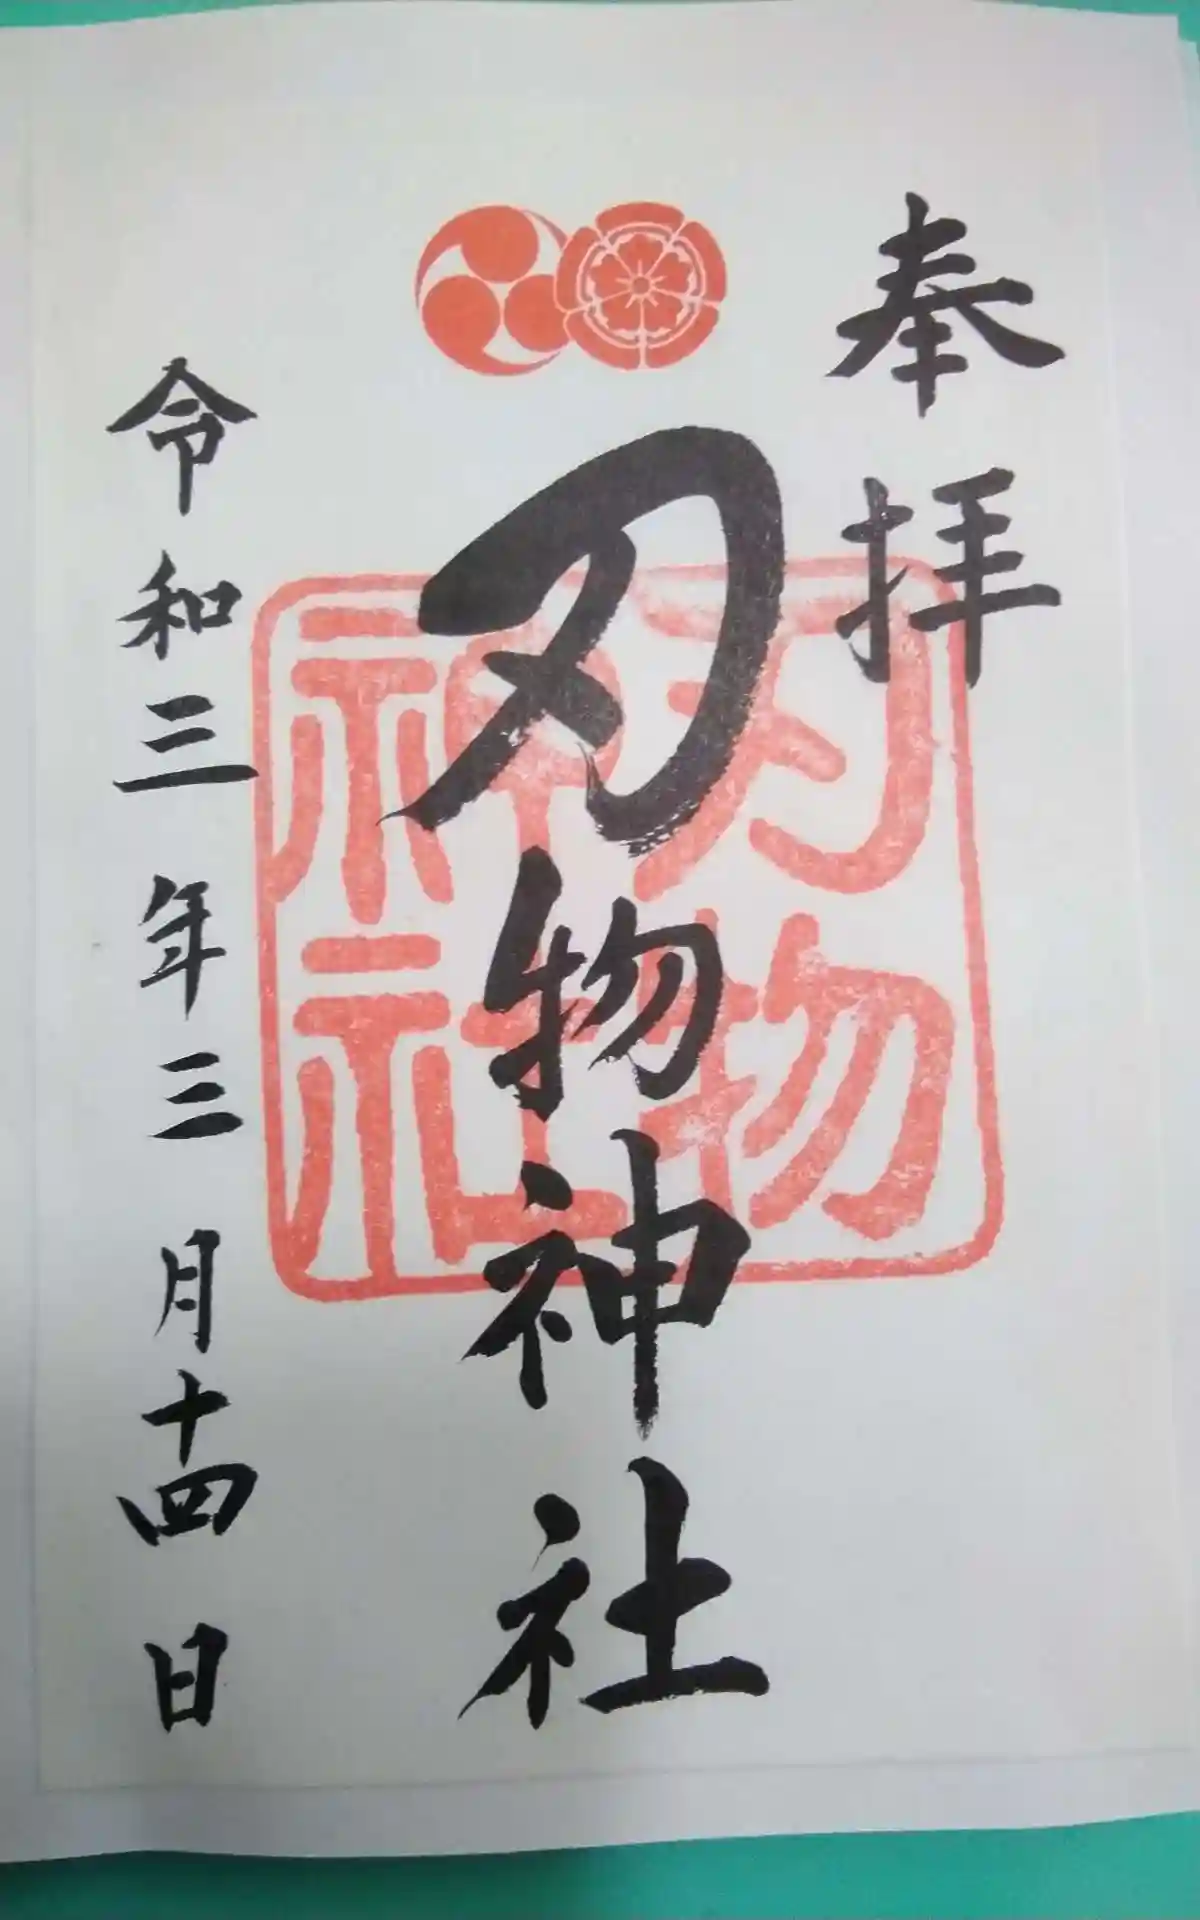 奉拝
刃物神社
刃物
神社
令和三年三月十四日